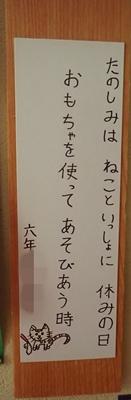 たのしみは ねこといっしょに 休みの日
おもちゃを使って あそびあう時
六年